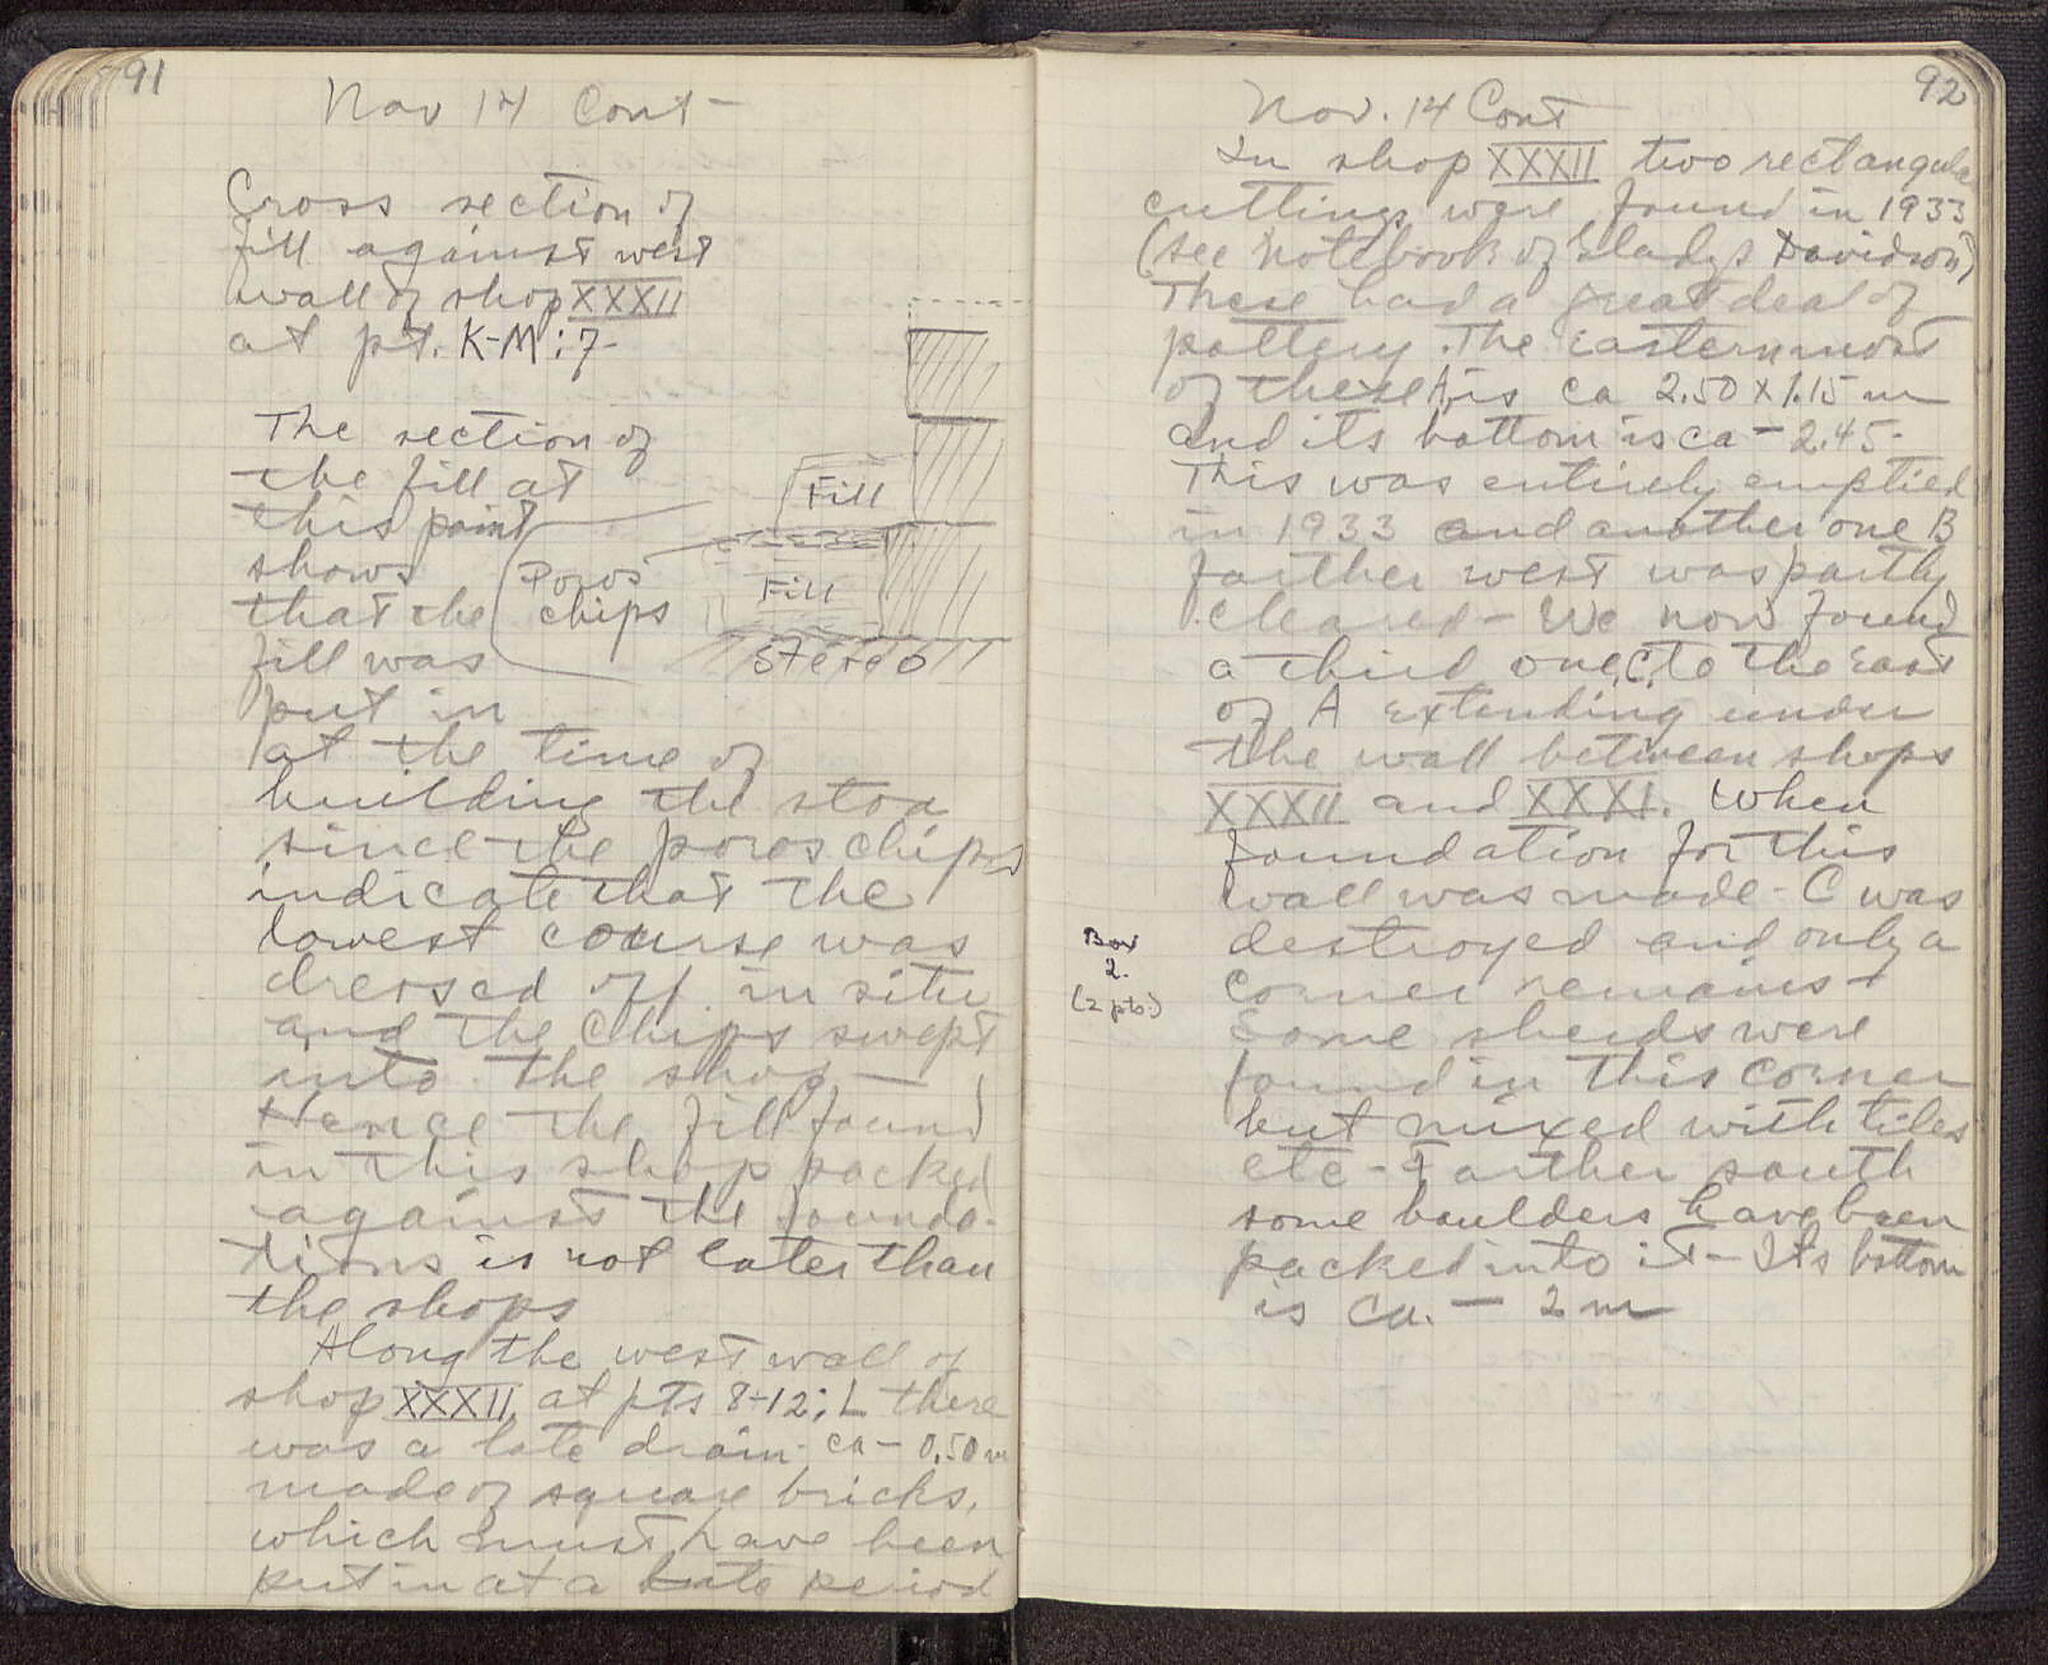 91
Nov 14 Cont -
Cross section of
fill against west
wall of shop XXXII
at pt. K-M:7-
The section of
the fill at
this point
shows
that the
fill was
put in
at the time of
building the stoa
since the poros chips
indicate that the
lowest course was
dressed off in situ
and the chips swept
into the shop —
Hence the fill found
in this shop packed
against the founda-
tions is not later than
the shops
Along the west wall of
shop XXXII at pts 8-12:L there
was a late drain - ca - 0.50 m
made of square bricks,
which must have been
put in at a late period
Fill
Poros
chips
Fill
stereo
92
Nov. 14 Cont
In shop XXXII two rectangular
cuttings were found in 1933
(see Notebook of Gladys Davidson)
These had a great deal of
pottery. The easternmost
of these A, is ca 2.50 x 1.15 m
and its bottom is ca - 2.45-
This was entirely emptied
in 1933 and another one B
farther west was partly
cleared - We now found
a third one, C, to the East
of A extending under
the wall between shops
XXXII and XXXI. When
foundation for this
wall was made - C was
destroyed and only a
corner remains -
Some sherds were
found in this corner
but mixed with tiles
etc - Farther south
some boulders have been
packed into it - Its bottom
is ca. - 2 m
Box
2.
(2 pts.)